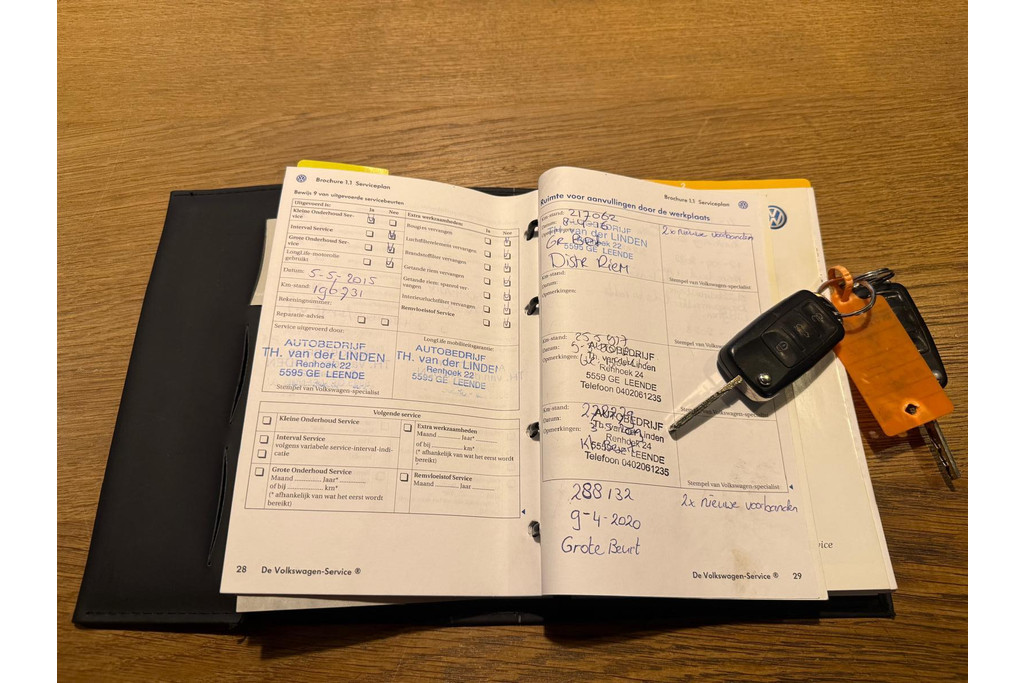 Brochure 1.1 Serviceplan
Bewijs 9 van uitgevoerde servicebeurten
Uitgevoerd is: Ja Nee
Kleine Onderhoud Ser-
vice
Interval Service
Grote Onderhoud Ser-
vice
LongLife-motorolie
gebruikt
Datum: 5-5-2015
Km-stand: 196731
Rekeningnummer:
Reparatie-advies
Service uitgevoerd door:
AUTOBEDRIJF
TH. van der LINDEN
Renhoek 22
5595 GE LEENDE
Stempel van Volkswagen-specialist
Extra werkzaamheden: Ja Nee
Bougies vervangen
Luchtfilterelement vervangen
Brandstoffilter vervangen
Getande riem vervangen
Getande riem: spanrol ver-
vangen
Interieurluchtfilter vervangen
Remvloeistof Service
LongLife mobiliteitsgarantie:
AUTOBEDRIJF
TH. van der LINDEN
Renhoek 22
5595 GE LEENDE
Volgende service
Kleine Onderhoud Service
Interval Service
volgens variabele service-interval-indi-
catie
Grote Onderhoud Service
Maand ........... Jaar*
of bij ............ km*
(* afhankelijk van wat het eerst wordt
bereikt)
Extra werkzaamheden
Maand ........... Jaar*
of bij ............ km*
(* afhankelijk van wat het eerst wordt
bereikt)
Remvloeistof Service
Maand ........... Jaar
28 De Volkswagen-Service ®
Brochure 1.1 Serviceplan
Ruimte voor aanvullingen door de werkplaats
Km-stand: 217062
8-4-16
AUTOBEDRIJF
van der LINDEN
Renhoek 22
5595 GE LEENDE
Distr Riem
2x nieuwe voorbanden
Stempel van Volkswagen-specialist
Km-stand:
Datum:
Opmerkingen:
Km-stand:
Datum:
Opmerkingen:
AUTOBEDRIJF
Th. van der Linden
Renhoek 22
5559 GE LEENDE
Telefoon 0402061235
Km-stand:
Datum:
Opmerkingen:
AUTOBEDRIJF
Th. van der Linden
Renhoek 24
GE LEENDE
Telefoon 0402061235
Stempel van Volkswagen-specialist
288132
9-4-2020
Grote Beurt
2x nieuwe voorbanden
De Volkswagen-Service ® 29